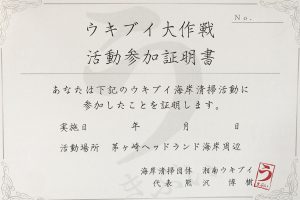 No.
ウキブイ大作戦
活動参加証明書
あなたは下記のウキブイ海岸清掃活動に
参加したことを証明します。
実施日 年 月 日
活動場所 茅ヶ崎ヘッドランド海岸周辺
海岸清掃団体 湘南ウキブイ
代表 熊沢 博樹
う